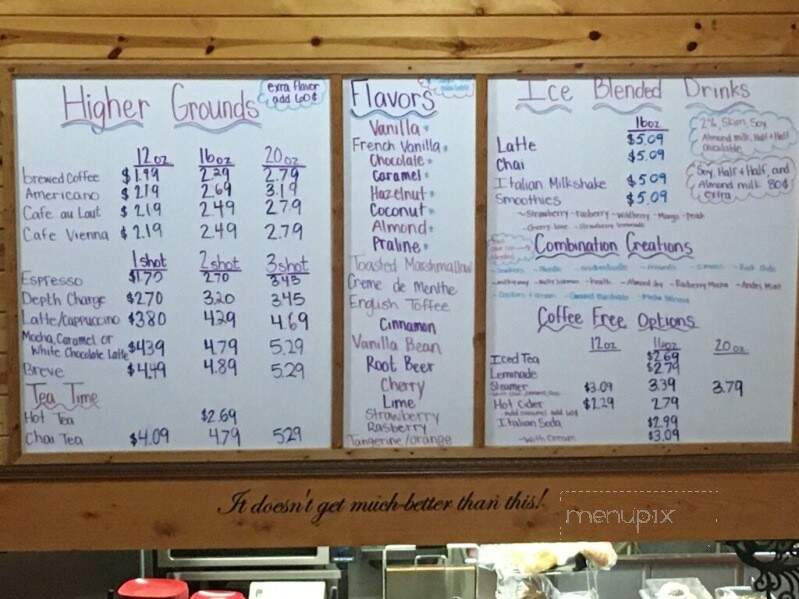 Higher Grounds
exra flavor
add 60¢
12oz 16oz 20oz
brewed Coffee $1.99 2.29 2.79
Americano $2.19 2.69 3.19
Cafe au Laut $2.19 2.49 2.79
Cafe Vienna $2.19 2.49 2.79
1shot 2shot 3shot
Espresso $1.75 2.70 3.45
Depth Charge $2.70 3.20 3.45
Latte/Cappuccino $3.80 4.29 4.69
Mocha, Caramel or
White Chocolate Latte $4.39 4.79 5.29
Breve $4.49 4.89 5.29
Tea Time
Hot Tea $2.69
Chai Tea $4.09 4.79 5.29
Flavors
Vanilla
French Vanilla
Chocolate
Caramel
Hazelnut
Coconut
Almond
Praline
Toasted Marshmallow
Creme de Menthe
English Toffee
Cinnamon
Vanilla Bean
Root Beer
Cherry
Lime
Strawberry
Rasberry
Tangerine/orange
Ice Blended Drinks
16oz
Latte $5.09
Chai $5.09
Italian Milkshake $5.09
Smoothies $5.09
~Strawberry ~ Rasberry ~ Wildberry ~ Mango ~ Peach
~Cherry lime ~ Strawberry lemonade
2%, Skim, Soy
Almond milk, Half + Half
available
Soy, Half + Half, and
Almond milk 80¢
extra
Combination Creations
Coffee Free Options
12oz 16oz 20oz
Iced Tea $2.69
Lemonade $2.79
Steamer $3.09 3.39 3.79
Hot Cider $2.29 2.79
~add caramel add 60¢
Italian Soda $2.99
~with cream $3.09
It doesn't get much better than this!
menupix